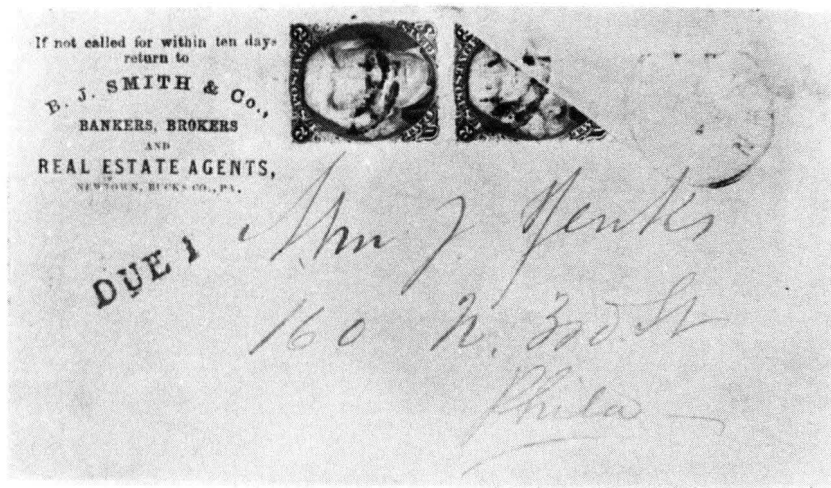 If not called for within ten days
return to
B. J. SMITH & Co.,
BANKERS, BROKERS
AND
REAL ESTATE AGENTS,
NEWTOWN, BUCKS CO., PA.
DUE 1
Wm J. Jenks
160 N. 3rd. St
Phila